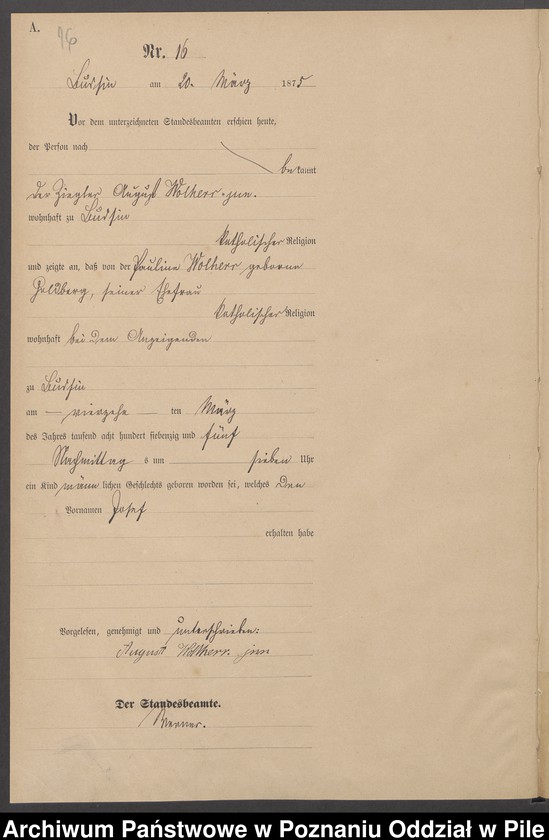 A.
16
Nr. 16
am 20. März 1875
Vor dem unterzeichneten Standesbeamten erschien heute,
der Person nach
bekannt
der Ziegler August Wolkers jun.
wohnhaft zu
katholischer Religion
und zeigte an, daß von der Pauline Wolkers geborne
Goldberg, seiner Ehefrau
katholischer Religion
wohnhaft bei dem Anzeigenden
zu
am — vierzehn — ten März
des Jahres tausend acht hundert siebenzig und fünf
Nachmittags um sieben Uhr
ein Kind männlichen Geschlechts geboren worden sei, welches den
Vornamen Josef
erhalten habe
Vorgelesen, genehmigt und unterschrieben:
August Wolkers jun
Der Standesbeamte.
Werner.
Archiwum Państwowe w Poznaniu Oddział w Pile